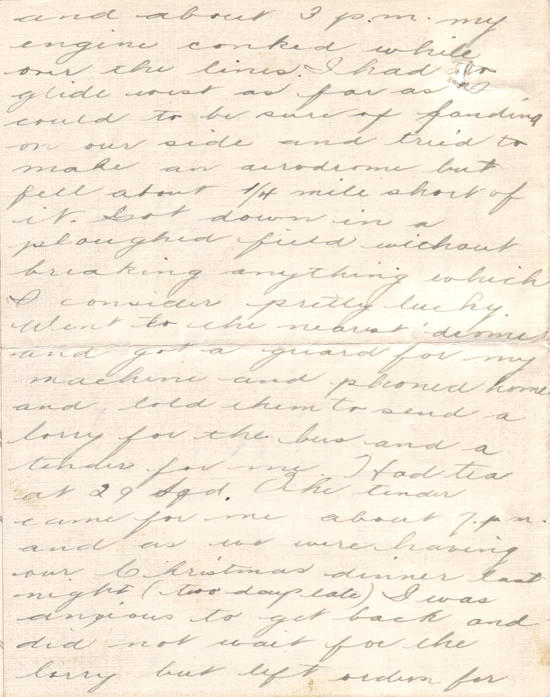 and about 3 p.m. my
engine conked while
over the lines. I had to
glide west as far as I
could to be sure of landing
on our side and tried to
make an aerodrome but
fell about 1/4 mile short of
it. Got down in a
ploughed field without
breaking anything which
I consider pretty lucky.
Went to the nearest 'drome
and got a guard for my
machine and phoned home
and told them to send a
lorry for the bus and a
tender for me. Had tea
at 29 Sqd. The tender
came for me about 7 p.m.
and as we were having
our Christmas dinner last
night (two days late) I was
anxious to get back and
did not wait for the
lorry but left orders for